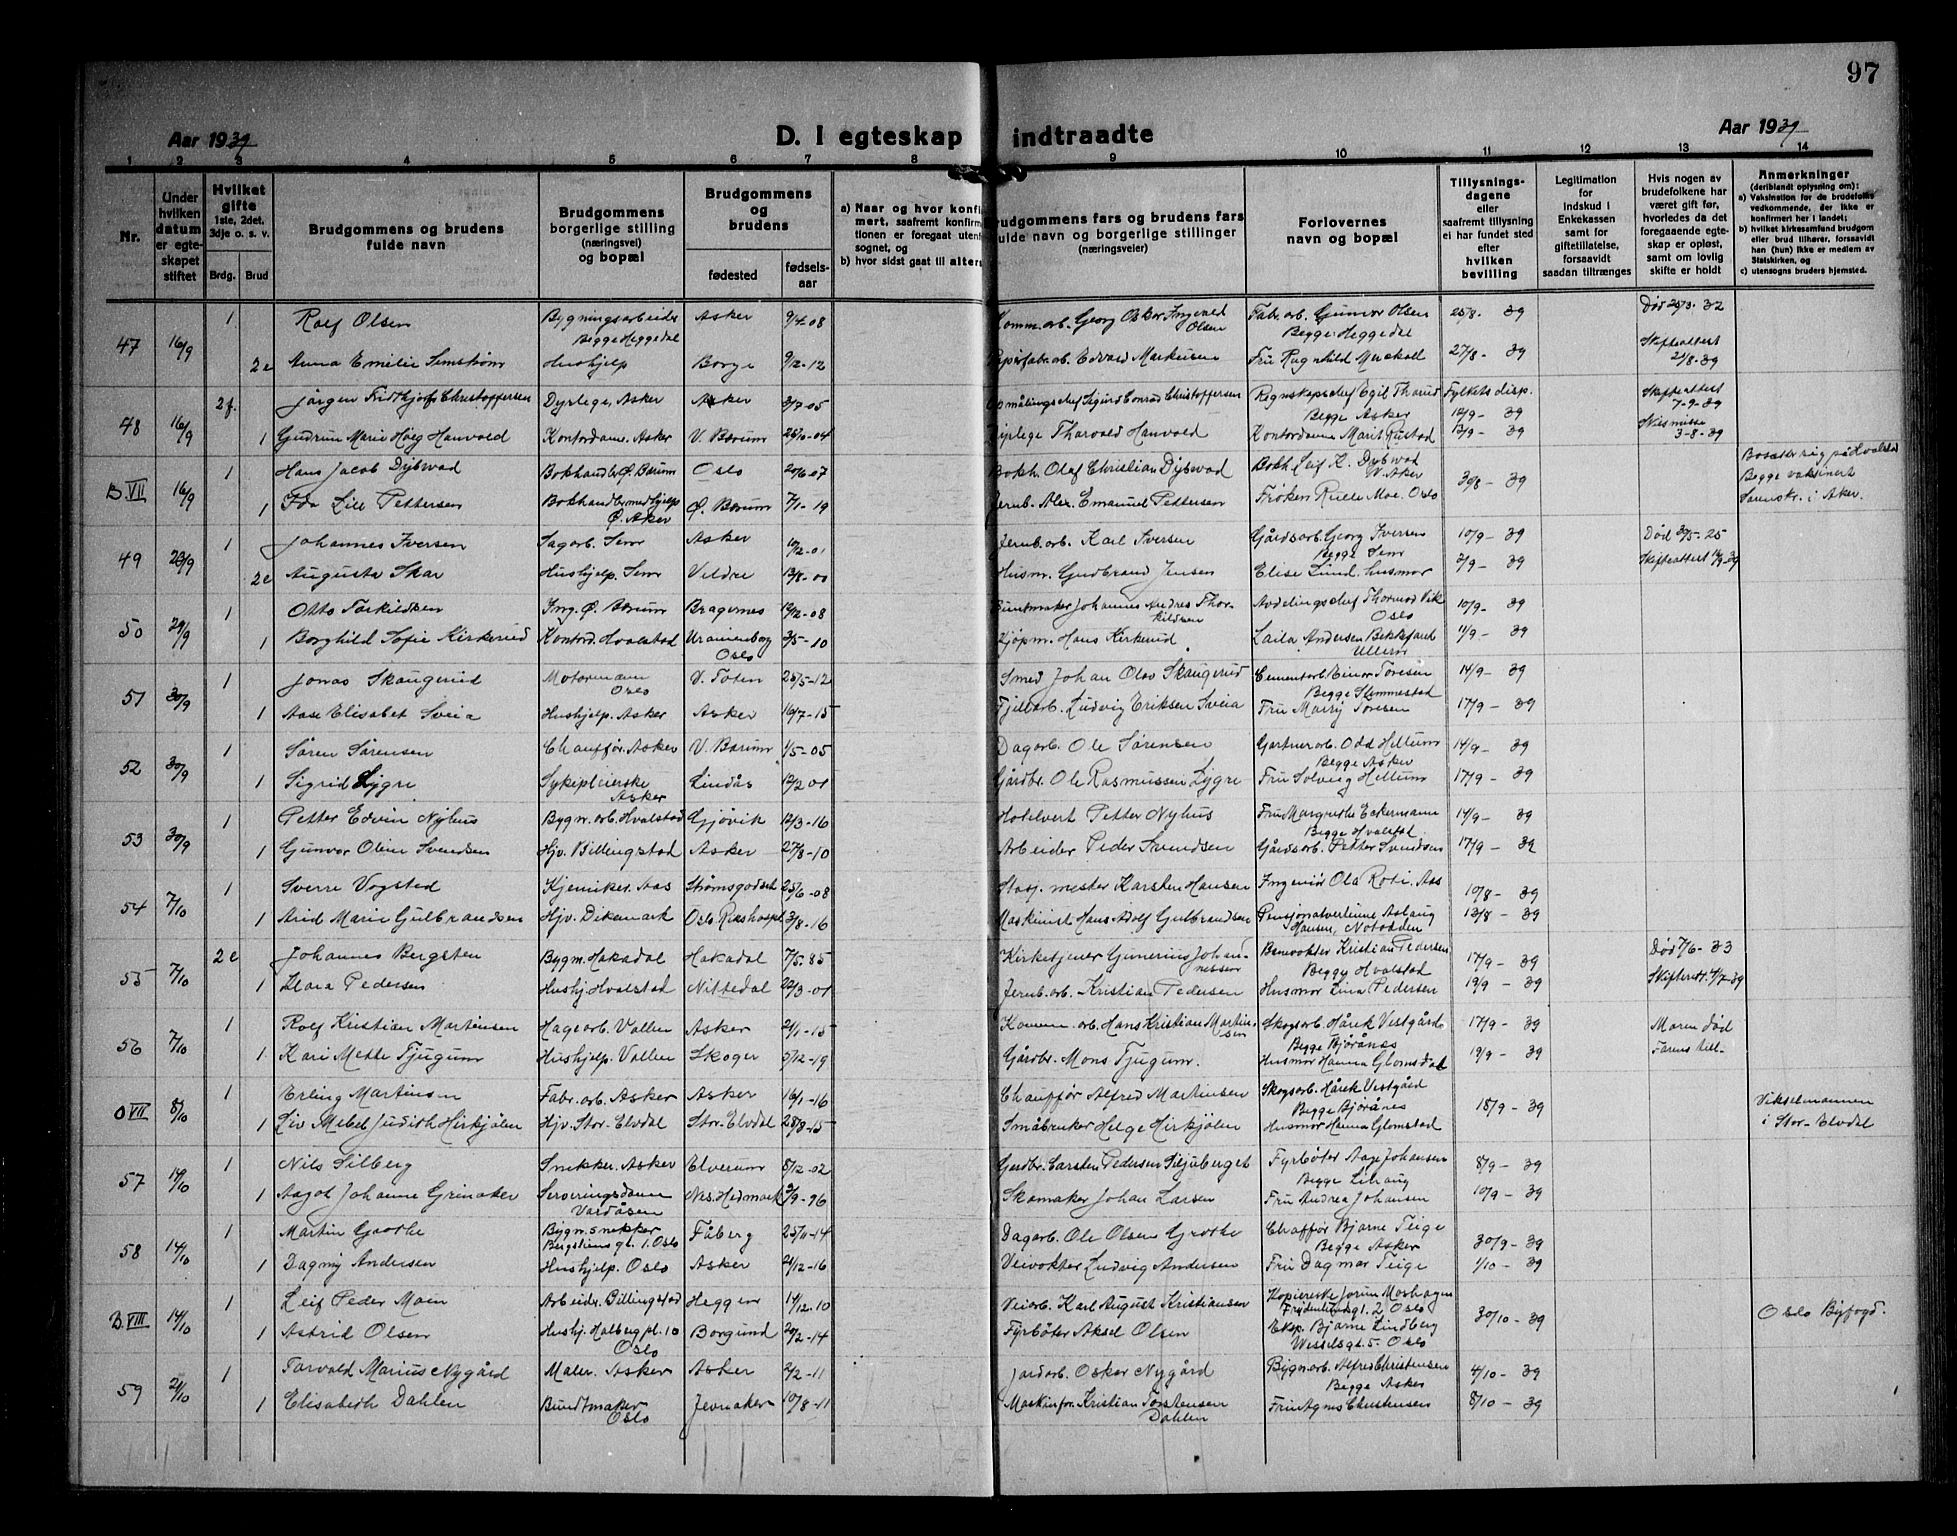 97
Aar 1939
D. I egteskap indtraadte
Aar 1939
1 2 3 4 5 6 7 8 9 10 11 12 13 14
Nr.
Under hvilken datum er egteskapet stiftet
Hvilket gifte 1ste, 2det, 3dje o. s. v.
Brdg. Brud
Brudgommens og brudens fulde navn
Brudgommens borgerlige stilling (næringsvei) og bopæl
Brudgommens og brudens
fødested
fødselsaar
a) Naar og hvor konfi
mert, saafremt konfirm
tionen er foregaat utenf
sognet, og
b) hvor sidst gaat til alters
rudgommens fars og brudens fars fulde navn og borgerlige stillinger (næringsveier)
Forlovernes navn og bopæl
Tillysningsdagene eller saafremt tillysning ei har fundet sted efter hvilken bevilling
Legitimation for indskud i Enkekassen samt for giftetilladelse, forsaavidt saadan tiltrænges
Hvis nogen av brudefolkene har været gift før, hvorledes da det foregaaende egteskap er opløst, samt om lovlig skifte er holdt
Anmerkninger
(deriblandt oplysning om):
a) Vaksination for de brudefolks vedkommende, der ikke er konfirmert her i landet;
b) hvilket kirkesamfund brudgom eller brud tilhører, forsaavidt han (hun) ikke er medlem av Statskirken, og
c) utensogns bruders hjemsted.
47 16/9 1 Rolf Olsen Bygningsarbeider Begge Heggedal Asker 9/4-08 Komm.arb. Georg Oskar Ingvald Olsen Fabr.arb. Gunvor Olsen Begge Heggedal 25/8- 39 Død 25/3-32
2e Anna Emilie Semstrøm Hushjelp Borge 9/2-12 Papirfabr.arb. Edvard Markussen Fru Ragnhild 27/8- 39 Skifteattest 21/8-39
48 16/9 2f. Jørgen Fridthjof Christoffersen Dyrlege, Asker Asker 3/7-05 Opmålingschef Sigurd Conrad Christoffersen Regnskapschef Egil Tharud Begge Asker Fylkets disp. 12/9- 39 Skifteattest 7-9-39
1 Gudrun Marie Høeg Hanvold Kontordame Asker V. Bærum 25/10-04 Dyrlege Tharvald Hanvold Kontordame Marit Rustad 13/9- 39 3-8-39
B.VII 16/9 1 Hans Jacob Dybwad Bokhandler Ø. Bærum Oslo 20/6-07 Bokh. Olaf Christian Dybwad Bokh. Leif K. Dybwad V. Aker 30/8- 39 Bosætter sig på Hvalstad
1 Ida Lill Pettersen Bokhandlermedhjelp Ø. Aker Ø. Bærum 7/1-19 Jernb. Alex. Emanuel Pettersen Frøken Moe, Oslo Begge vaksinert
i Aker.
49 23/9 1 Johannes Iversen Sagarb. Sem Asker 10/2-01 Jernb.arb. Karl Iversen Gårdsarb. Georg Iversen Begge Sem 10/9- 39 Død 30/5-25
2e Augusta Skar Hushjelp. Sem Veldre 13/8-00 Husm. Gudbrand Jensen Elise Lund, husmor 3/9- 39 Skifteattest 14/9-39
50 29/9 1 Otto Torkildsen Ing. Ø. Bærum Bragernes 12/12-08 Buntmaker Johannes Andres Thorkildsen Avdelingschef Thormod Vik Oslo 10/9- 39
1 Borghild Sofie Kirkerud Kontord. Hvalstad Uranienborg Oslo 3/5-10 Kjøpm. Hans Kirkerud Laila Andersen Bekkefaret Ullern 11/9- 39
51 30/9 1 Jonas Skaugerud Motormann Oslo V. Toten 25/5-12 Smed Johan Olav Skaugerud Cementarb. Einar Toresen Begge Slemmestad 14/9- 39
1 Aase Elisabet Sveia Hushjelp. Asker Asker 16/7-15 Ludvig Eriksen Sveia Fru Marry Toresen 17/9- 39
52 30/9 1 Søren Sørensen Chauffør. Asker V. Bærum 1/5-05 Dagarb. Ole Sørensen Gartnerarb. Odd Hellum Begge Asker 14/9- 39
1 Sigrid Lygre Sykepleierske Asker Lindås 12/2 01 Gårdbr. Ole Rasmussen Lygre Fru Solveig Hellum 17/9- 39
53 30/9 1 Petter Edvin Nyhus Bygn.arb. Hvalstad Gjøvik 12/3-16 Hotelvert Petter Nyhus Fru Margrethe Eckermann Begge Hvalstad 14/9- 39
1 Gunvor Oline Svendsen Hjv. Billingstad Asker 27/8-10 Arbeider Peder Svendsen Gårdsarb. Petter Svendsen 17/9- 39
54 7/10 1 Sverre Vogsted Kjemiker. Aas Strømsgodset 25/6-08 Stasj.mester Karsten Hansen Ingeniør Ola Roti. Aas 10/8- 39
1 Arid Marie Gulbrandsen Hjv. Dikemark Oslo Rikshospt. 3/8-16 Maskinist Hans Adolf Gulbrandsen Pensjonatvertinne Aslaug Hansen, Notodden 13/8- 39
55 7/10 2e Johannes Bergsten Bygm. Hakadal Hakadal 7/5-85 Kirketjener Gunerius Johannessen Banevokter Kristian Pedersen Begge Hvalstad 17/9- 39 Død 7/6-33
1 Klara Pedersen Hushj. Hvalstad Nittedal 22/3-01 Jernb.arb. Kristian Pedersen Husmor Lina Pedersen 19/9- 39 Skifteatt. 4/7-39
56 7/10 1 Rolf Kristian Martinsen Hagearb. Vollen Asker 21/1-15 Komm.arb. Hans Kristian Martinsen Skogsarb. Hårek Vestgård Begge Bjørånes 17/9- 39 Moren død
1 Kari Mette Tjugum Hushjelp. Vollen Skoger 5/12-19 Gårdbr. Mons Tjugum. Husmor Hanna Glomsdal 19/9- 39 Farens till-
O VII 8/10 1 Erling Martinsen Fabr.arb. Asker Asker 16/1-16 Chauffør Alfred Martinsen Skogsarb. Hårek Vestgård Begge Bjørånes 18/9- 39 Vikselmannen
1 Liv Mebel Judith Hirkjølen Hjv. Stor-Elvdal Stor-Elvdal 28/8-15 Småbruker Helge Hirkjølen Husmor Hanna Glomstad i Stor-Elvdal
57 14/10 1 Nils Silberg Snekker. Asker Elverum 8/12-02 Gardbr. Carsten Pedersen Siljuberget Fyrbøter Aage Johansen Begge Lihaug 8/9- 39
1 Aagot Johanne Grinaker Serveringsdame Vardåsen Nes. Hedmark 2/9-96 Skomaker Johan Larsen Fru Andrea Johansen 10/9- 39
58 14/10 1 Martin Grothe Bygn.snekker Bergsliens gt. 1. Oslo Fåberg 25/11-14 Dagarb. Ole Olsen Grothe Chaffør Bjarne Teige Begge Asker 30/9- 39
1 Dagny Andersen Hushjelp. Oslo Asker 21/12-16 Veivokter Ludvig Andersen Fru Dagmar Teige 1/10- 39
B.VIII 14/10 1 Leif Peder Moen Arbeider. Billingstad Heggen 14/12-10 Veiarb. Karl August Kristiansen Kopierske Jorun Moshagen Frydenlundsgt. 2 Oslo 30/10- 39 Oslo Byfogd.
1 Astrid Olsen Hushj. Holbergs pl. 10 Oslo Borgund 20/2-14 Fyrbøter Aksel Olsen Eksp. Bjarne Lindberg Wesselsgt. 5. Oslo
59 21/10 1 Torvald Marius Nygård Maler. Asker Asker 2/2-11 Jordarb. Oskar Nygård Bygn.arb. Alfred Christensen Begge Asker 4/10- 39
1 Elisabeth Dahlen Bundtmaker Oslo Jevnaker 10/8-11 Maskinfør. Kristian Torstensen Dahlen Fru Agnes Christensen 8/10- 39